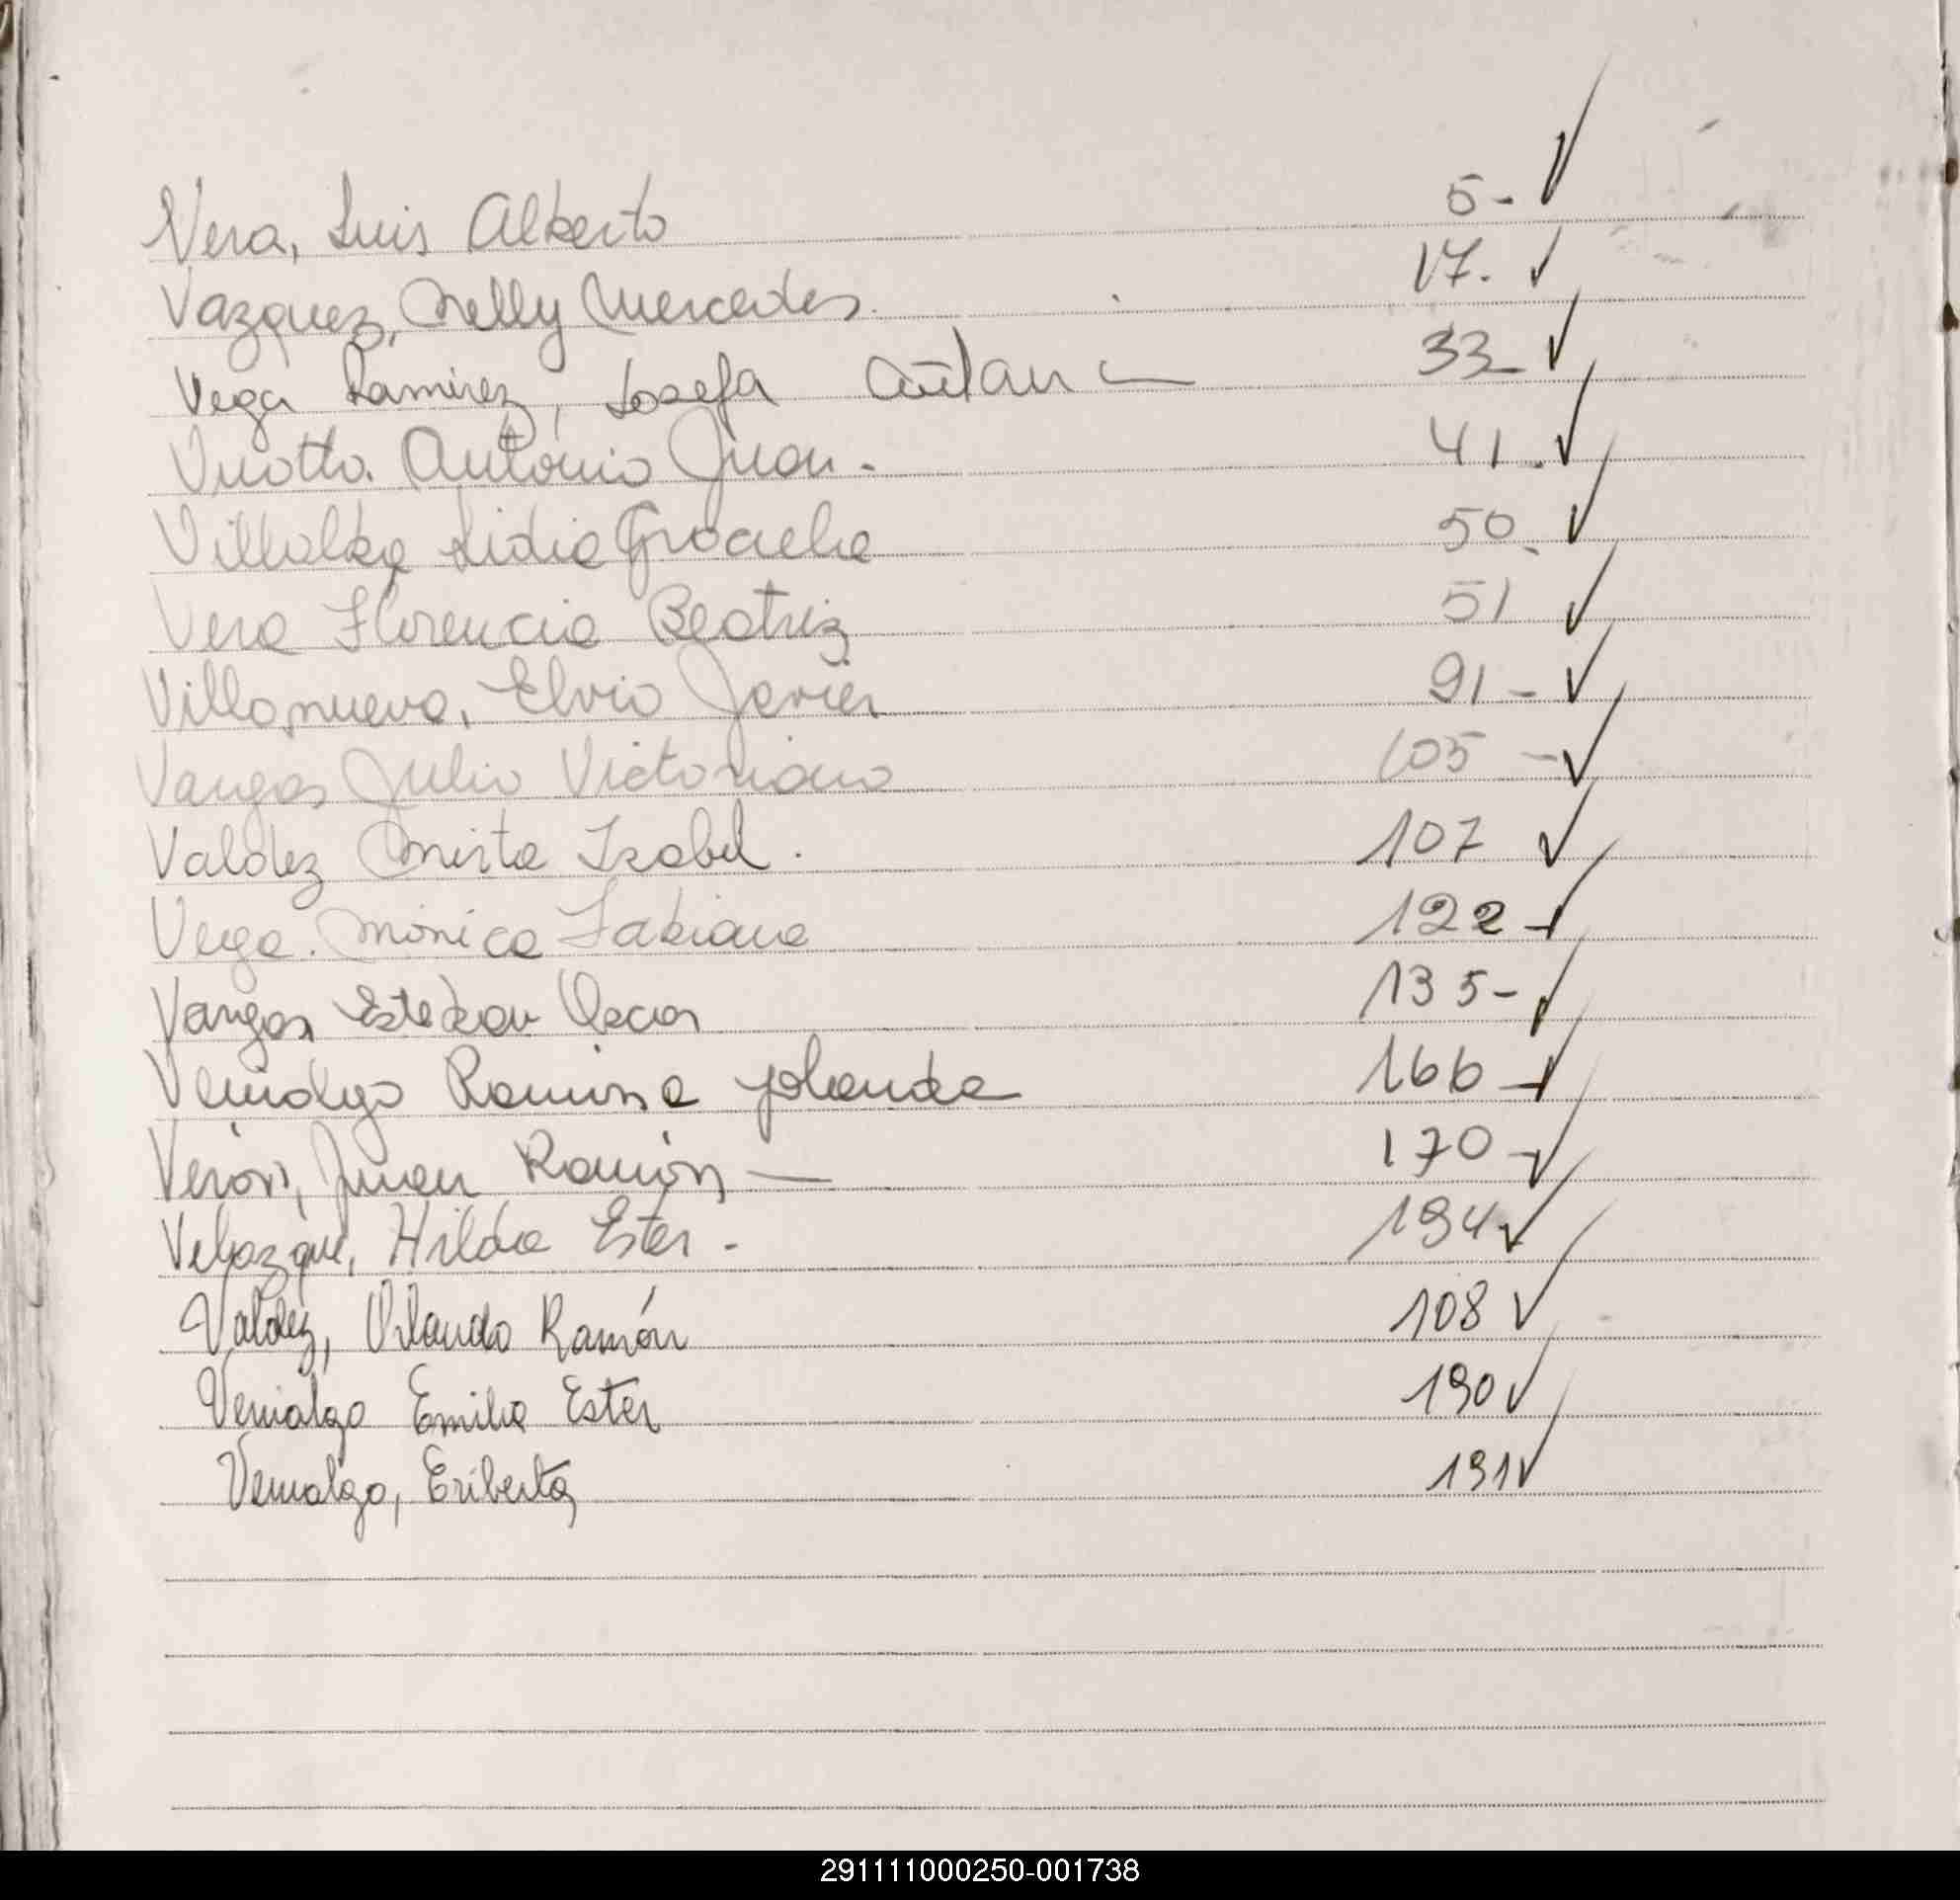 Vera, Luis Alberto 5- ✓
Vazquez, Nelly Mercedes. 17. ✓
Vega Ramirez, Josefa 33- ✓
Antonio Juan - 41.- ✓
Villalba Lidia Graciela 50. ✓
Vera Florencia Beatriz 51 ✓
Villanueva, Elvio Javier 91- ✓
Vargas Julio Victoriano 105 - ✓
Valdez Mirta Isabel. 107 ✓
Vega. Mónica Fabiana 122- ✓
Vargas Esteban Oscar 135- ✓
Venialgo Ramona Yolanda 166- ✓
Verón, Juan Ramón — 170- ✓
Velazque, Hilda Ester - 194 ✓
Valdez, Orlando Ramón 108 ✓
Venialgo Emilia Ester 190 ✓
Venialgo, Eriberta 191 ✓
291111000250-001738